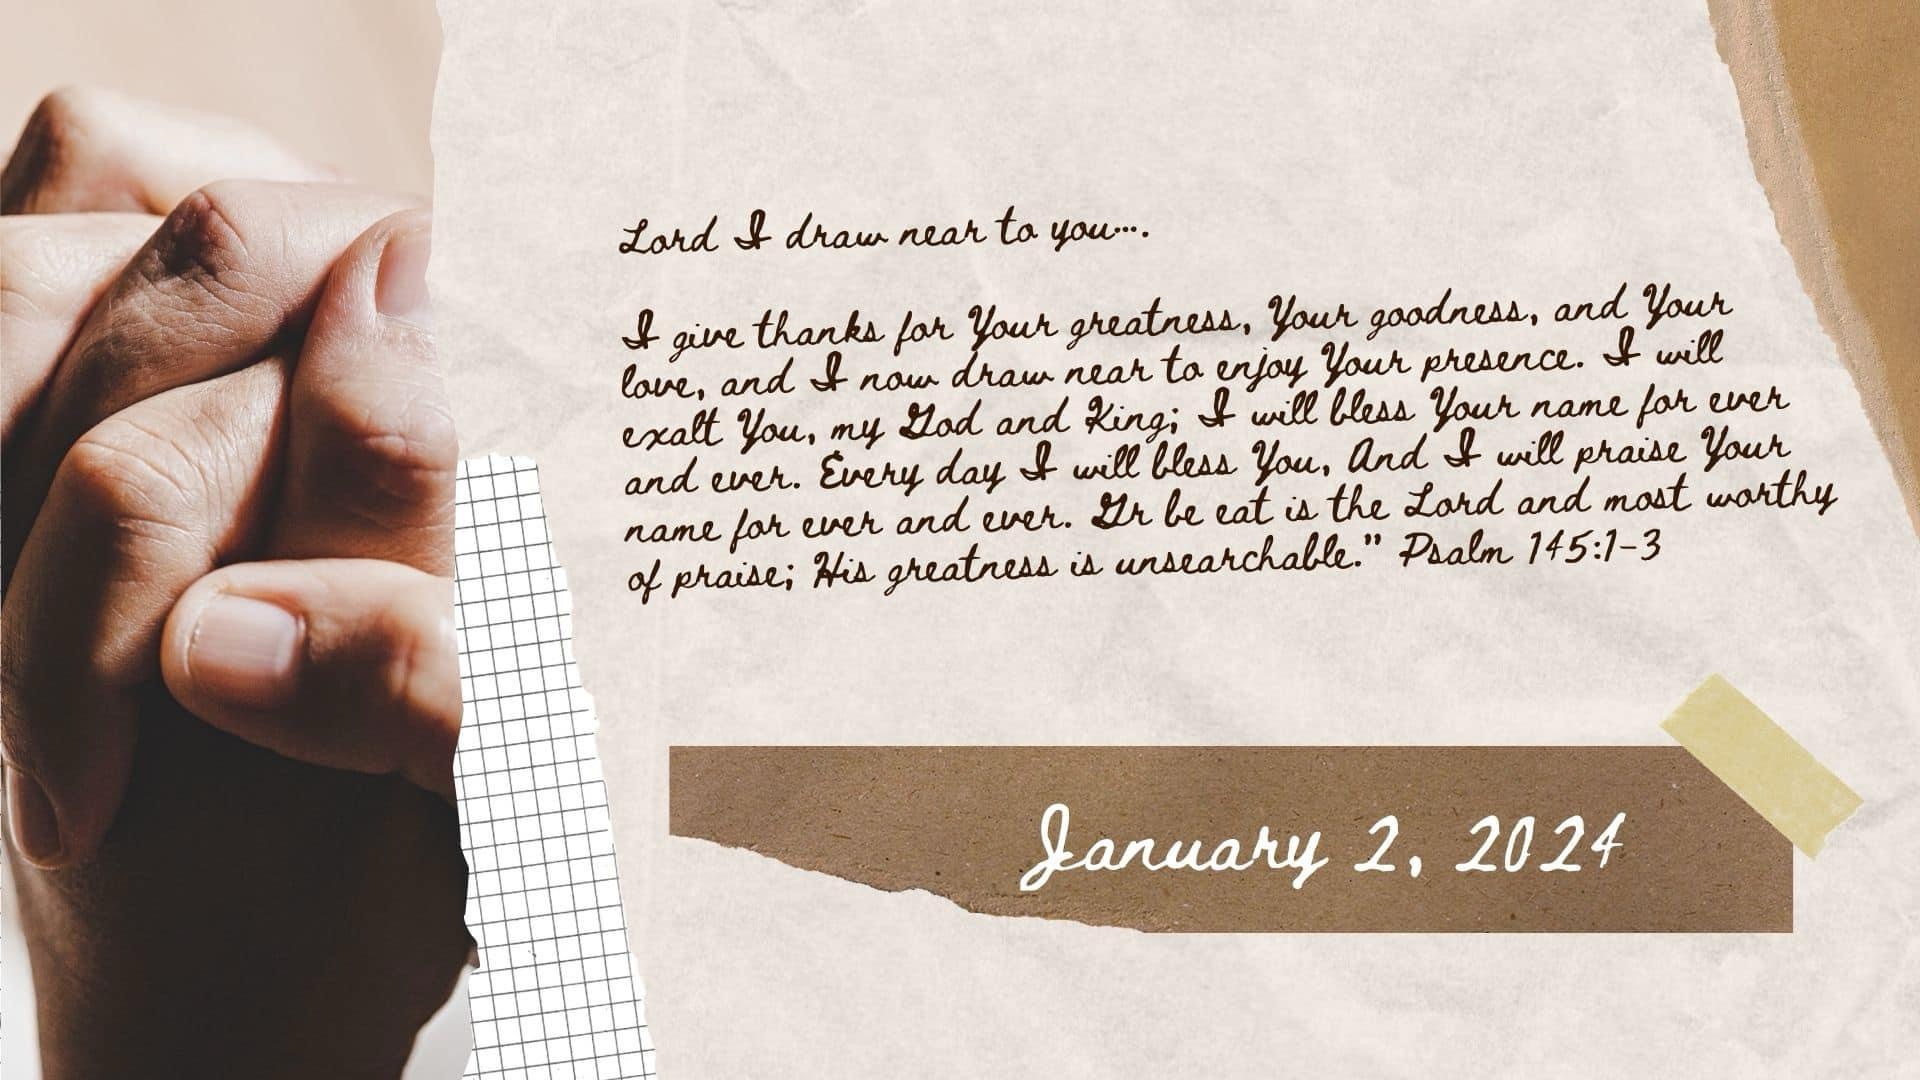 Lord I draw near to you....
I give thanks for Your greatness, Your goodness, and Your
love, and I now draw near to enjoy Your presence. I will
exalt You, my God and King; I will bless Your name for ever
and ever. Every day I will bless You, And I will praise Your
name for ever and ever. Gr be eat is the Lord and most worthy
of praise; His greatness is unsearchable.” Psalm 145:1-3
January 2, 2024